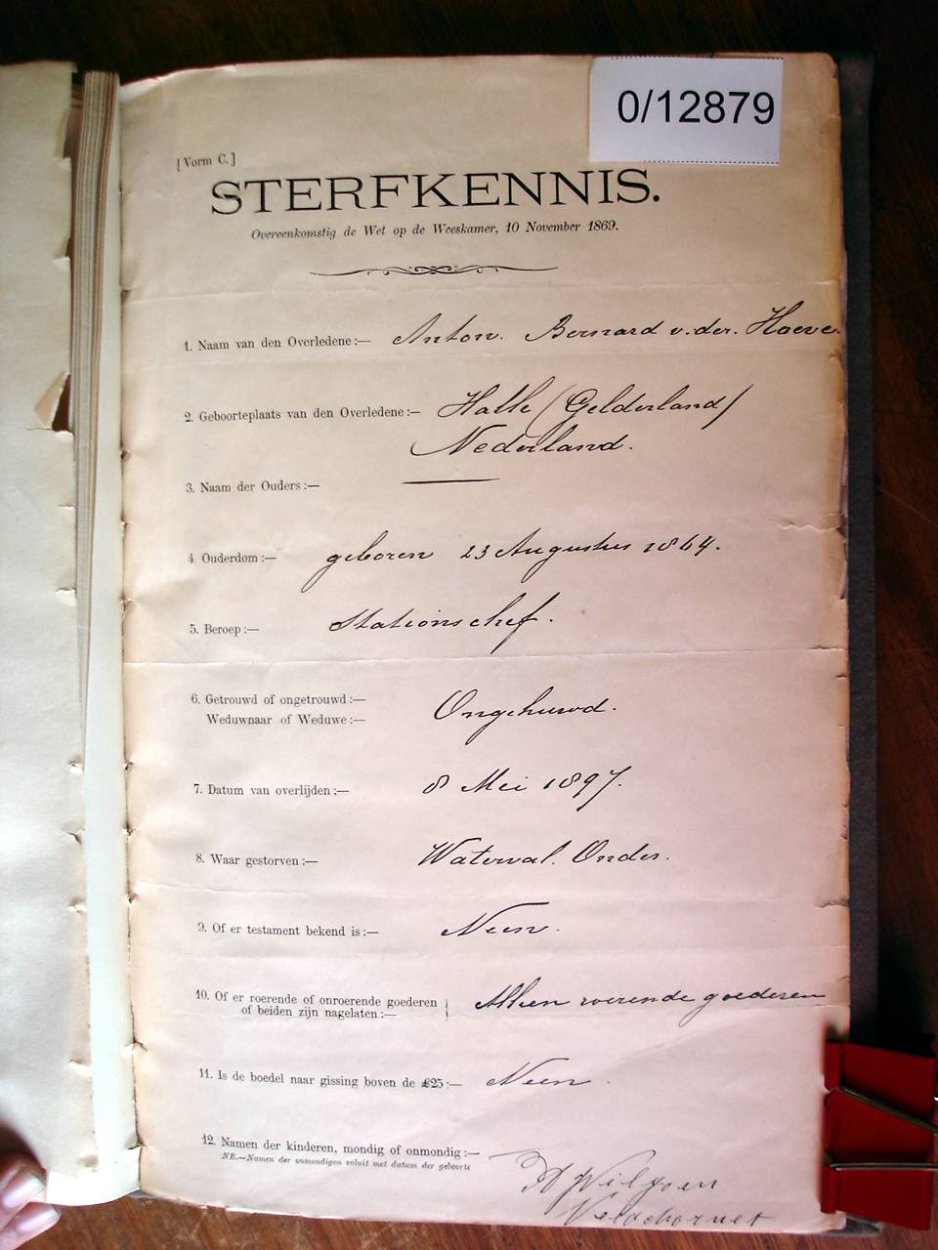 0/12879
[Vorm C.]
STERFKENNIS.
Overeenkomstig de Wet op de Weeskamer, 10 November 1869.
1. Naam van den Overledene:— Anton. Bernard v.der. Hoeve.
2. Geboorteplaats van den Overledene:— Halle (Gelderland)
Nederland.
3. Naam der Ouders:— —
4. Ouderdom:— geboren 23 Augustus 1864.
5. Beroep:— Stationschef.
6. Getrouwd of ongetrouwd:—
Weduwnaar of Weduwe:— Ongehuwd.
7. Datum van overlijden:— 8 Mei 1897.
8. Waar gestorven:— Waterval. Onder.
9. Of er testament bekend is:— Neen.
10. Of er roerende of onroerende goederen
of beiden zijn nagelaten:— Alleen roerende goederen
11. Is de boedel naar gissing boven de £25:— Neen.
12. Namen der kinderen, mondig of onmondig:— —
NB.—Namen der onmondigen voluit met datum der geboorte
Veldcornet